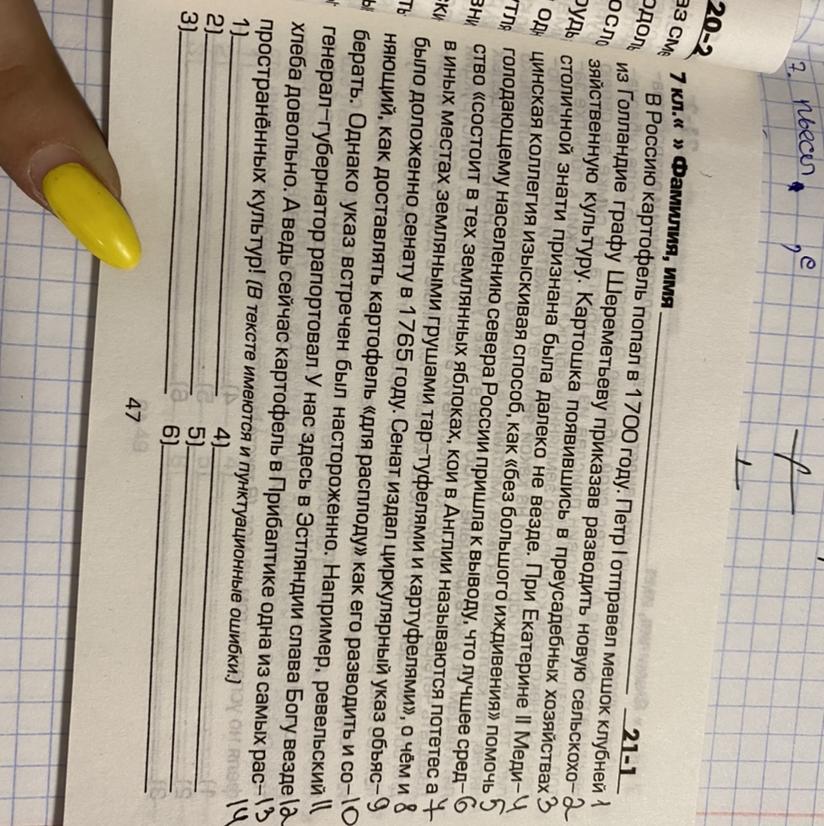 7. пьесы
20-2
7 кл.« » Фамилия, имя 21-1
В Россию картофель попал в 1700 году. Петр I отправел мешок клубней 1
из Голландие графу Шереметьеву приказав разводить новую сельскохо- 2
зяйственную культуру. Картошка появившись в преусадебных хозяйствах 3
столичной знати признана была далеко не везде. При Екатерине II Меди- 4
цинская коллегия изыскивая способ, как «без большого иждивения» помочь 5
голодающему населению севера России пришла к выводу, что лучшее сред- 6
ство «состоит в тех землянных яблоках, кои в Англии называются потетес а 7
в иных местах земляными грушами тар-туфелями и картуфелями», о чём и 8
было доложенно сенату в 1765 году. Сенат издал циркулярный указ объяс- 9
няющий, как доставлять картофель «для расплоду» как его разводить и со- 10
берать. Однако указ встречен был настороженно. Например, ревельский 11
генерал-губернатор рапортовал У нас здесь в Эстляндии слава Богу везде 12
хлеба довольно. А ведь сейчас картофель в Прибалтике одна из самых рас- 13
пространённых культур! (В тексте имеются и пунктуационные ошибки.) 14
1) 4)
2) 5)
3) 6)
47